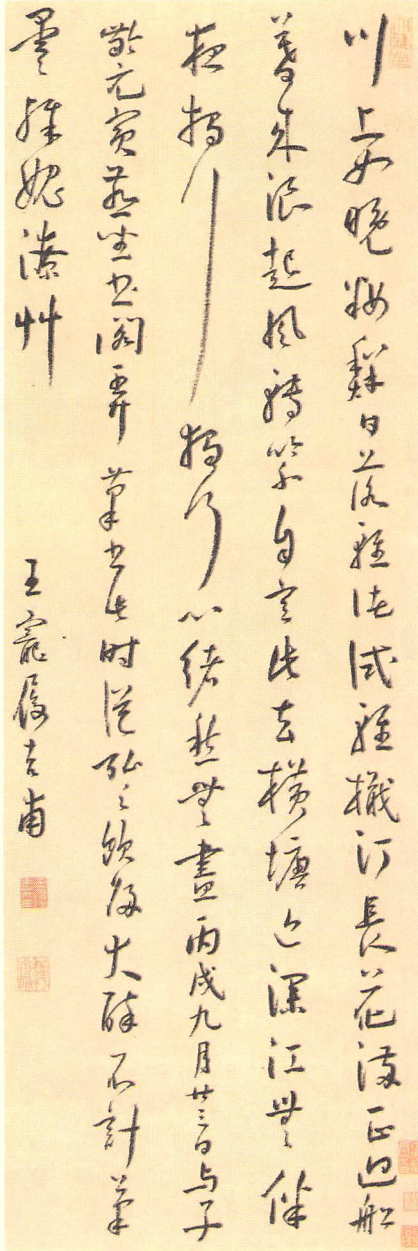 川上女晚粧鮮日落輕渚試輕檝汀長花滿正迴船
暮來浪起風轉緊自言此去橫塘近深江無伴
夜獨行獨行心緒愁無盡丙戌九月廿三日與子
齡元賓燕坐書閣弄筆書此時從弘之飲後大醉不計筆
墨殊愧潦艸
王寵履吉甫